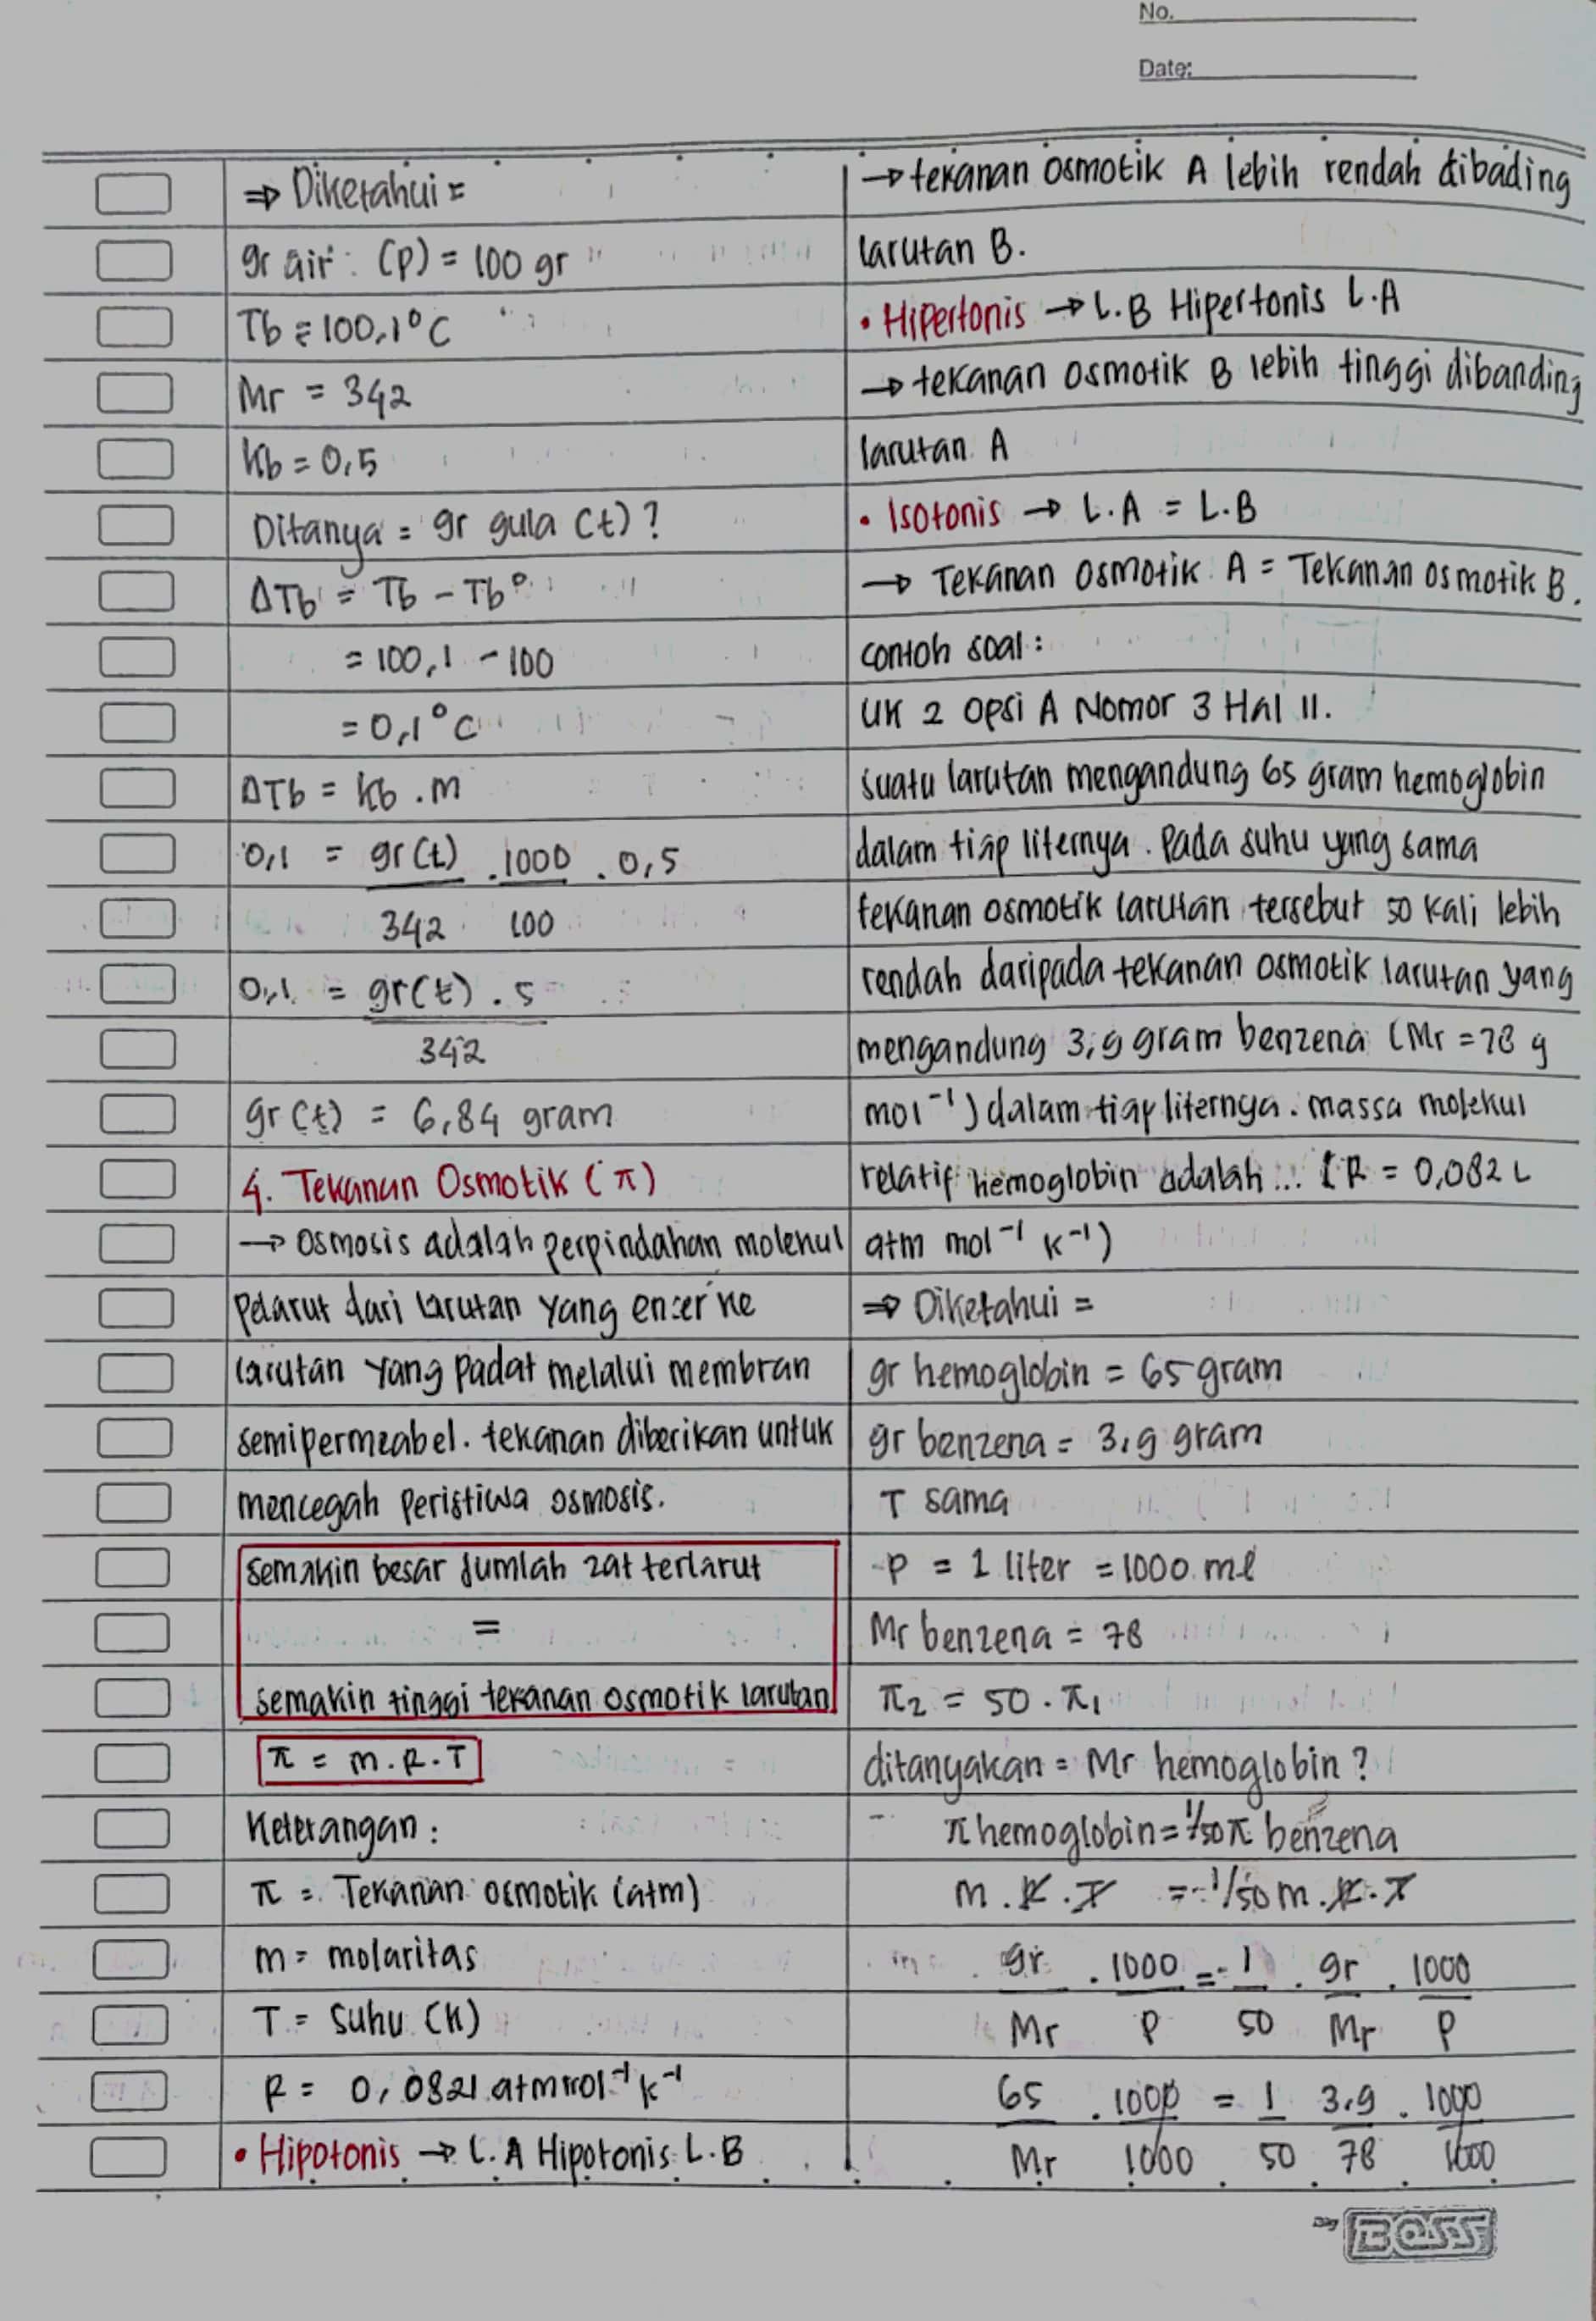 No.
Date:
⇒ Diketahui =
gr air : (p) = 100 gr
Tb = 100,1°C
Mr = 342
Kb = 0,5
Ditanya = gr gula (t) ?
ΔTb = Tb - Tb°
= 100,1 - 100
= 0,1°C
ΔTb = Kb . m
0,1 = gr(t) . 1000 . 0,5
342 100
0,1 = gr(t) . 5
342
gr(t) = 6,84 gram
4. Tekanan Osmotik (π)
→ Osmosis adalah perpindahan molekul
Pelarut dari larutan yang encer ke
larutan yang padat melalui membran
semipermeabel. tekanan diberikan untuk
mencegah peristiwa osmosis.
semakin besar Jumlah zat terlarut
=
semakin tinggi tekanan osmotik larutan
π = m . R . T
Keterangan :
π = Tekanan osmotik (atm)
m = molaritas
T = Suhu (K)
R = 0,0821 atm mol⁻¹ K⁻¹
• Hipotonis → L.A Hipotonis L.B
→ tekanan osmotik A lebih rendah dibading
larutan B.
• Hipertonis → L.B Hipertonis L.A
→ tekanan osmotik B lebih tinggi dibanding
larutan A
• Isotonis → L.A = L.B
→ Tekanan osmotik A = Tekanan osmotik B.
contoh soal :
UK 2 Opsi A Nomor 3 Hal 11.
suatu larutan mengandung 65 gram hemoglobin
dalam tiap liternya. Pada suhu yang sama
tekanan osmotik larutan tersebut 50 kali lebih
rendah daripada tekanan osmotik larutan yang
mengandung 3,9 gram benzena (Mr = 78 g
mol⁻¹) dalam tiap liternya. massa molekul
relatif hemoglobin adalah ... (R = 0,082 L
atm mol⁻¹ K⁻¹)
⇒ Diketahui =
gr hemoglobin = 65 gram
gr benzena = 3,9 gram
T sama
P = 1 liter = 1000 ml
Mr benzena = 78
π₂ = 50 . π₁
ditanyakan = Mr hemoglobin ?
π hemoglobin = 1/50 π benzena
m . R . T = 1/50 m . R . T
gr . 1000 = 1 . gr . 1000
Mr P 50 Mr P
65 . 1000 = 1 3,9 . 1000
Mr 1000 50 78 1000
BOSS